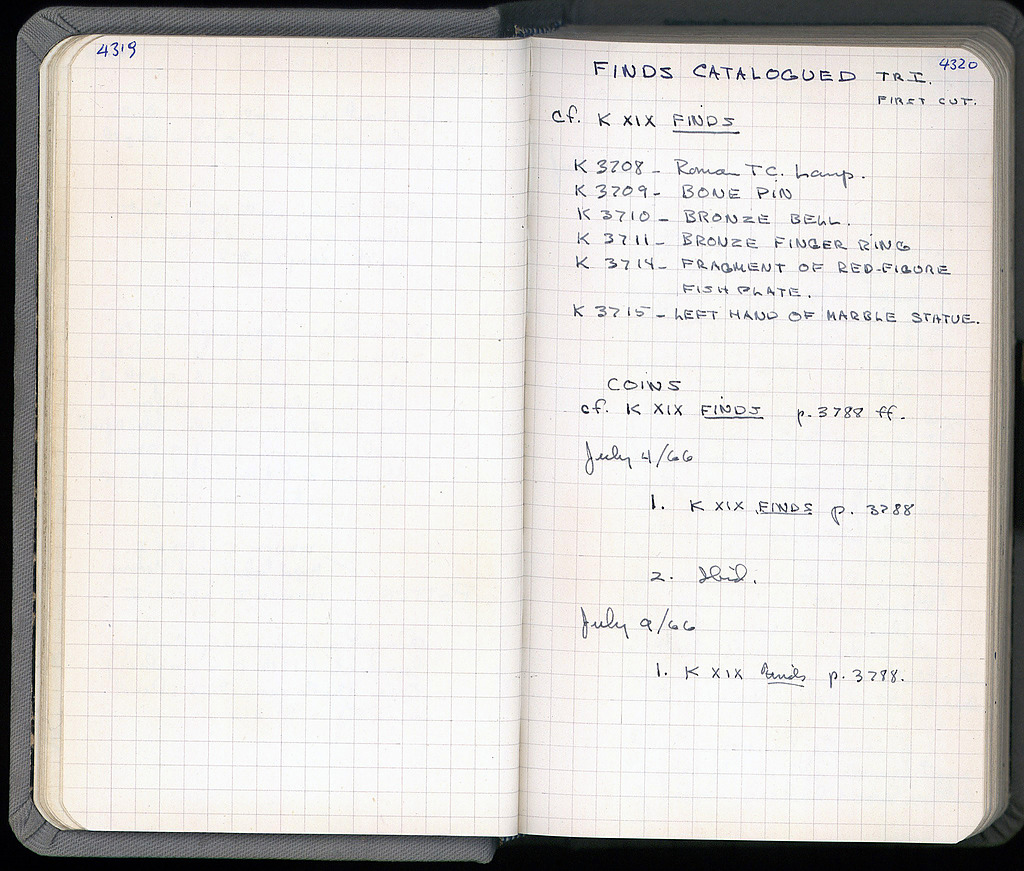 4319
4320
FINDS CATALOGUED TR I.
FIRST CUT.
cf. K XIX FINDS
K 3208 - Roman T.C. Lamp.
K 3209 - BONE PIN
K 3710 - BRONZE BELL.
K 3711 - BRONZE FINGER RING
K 3714 - FRAGMENT OF RED-FIGURE
FISH PLATE.
K 3715 - LEFT HAND OF MARBLE STATUE.
COINS
cf. K XIX FINDS p. 3788 ff.
July 4/66
1. K XIX FINDS p. 3788
2. Ibid.
July 9/66
1. K XIX Finds p. 3788.